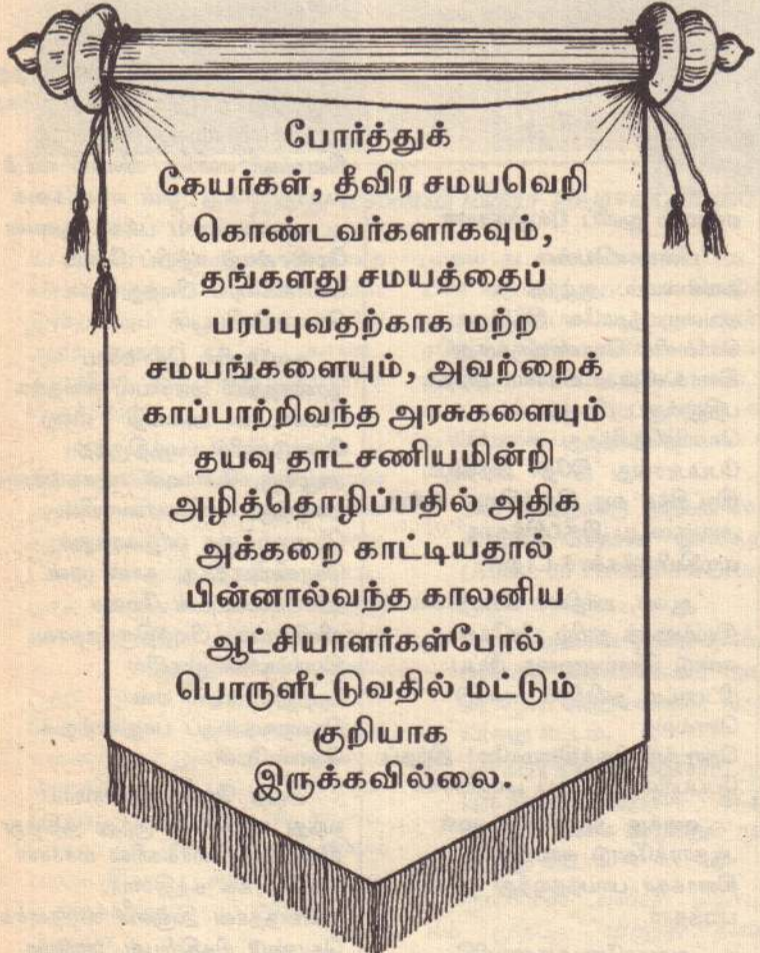 போர்த்துக்
கேயர்கள், தீவிர சமயவெறி
கொண்டவர்களாகவும்,
தங்களது சமயத்தைப்
பரப்புவதற்காக மற்ற
சமயங்களையும், அவற்றைக்
காப்பாற்றிவந்த அரசுகளையும்
தயவு தாட்சணியமின்றி
அழித்தொழிப்பதில் அதிக
அக்கறை காட்டியதால்
பின்னால்வந்த காலனிய
ஆட்சியாளர்கள்போல்
பொருளீட்டுவதில் மட்டும்
குறியாக
இருக்கவில்லை.